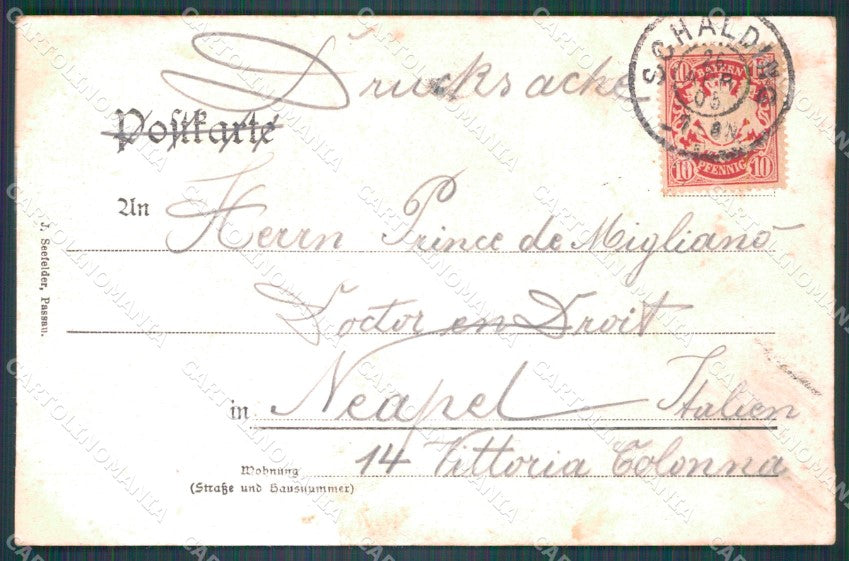 Drucksache
Postkarte
An Herrn Prince de Migliano
Doctor en Droit
in Neapel Italien
Wohnung 14 Vittoria Colonna
(Straße und Hausnummer)
J. Seefelder, Passau.
SCHALDING
05
10 BAYERN 10
10 PFENNIG 10
CARTOLINOMANIA